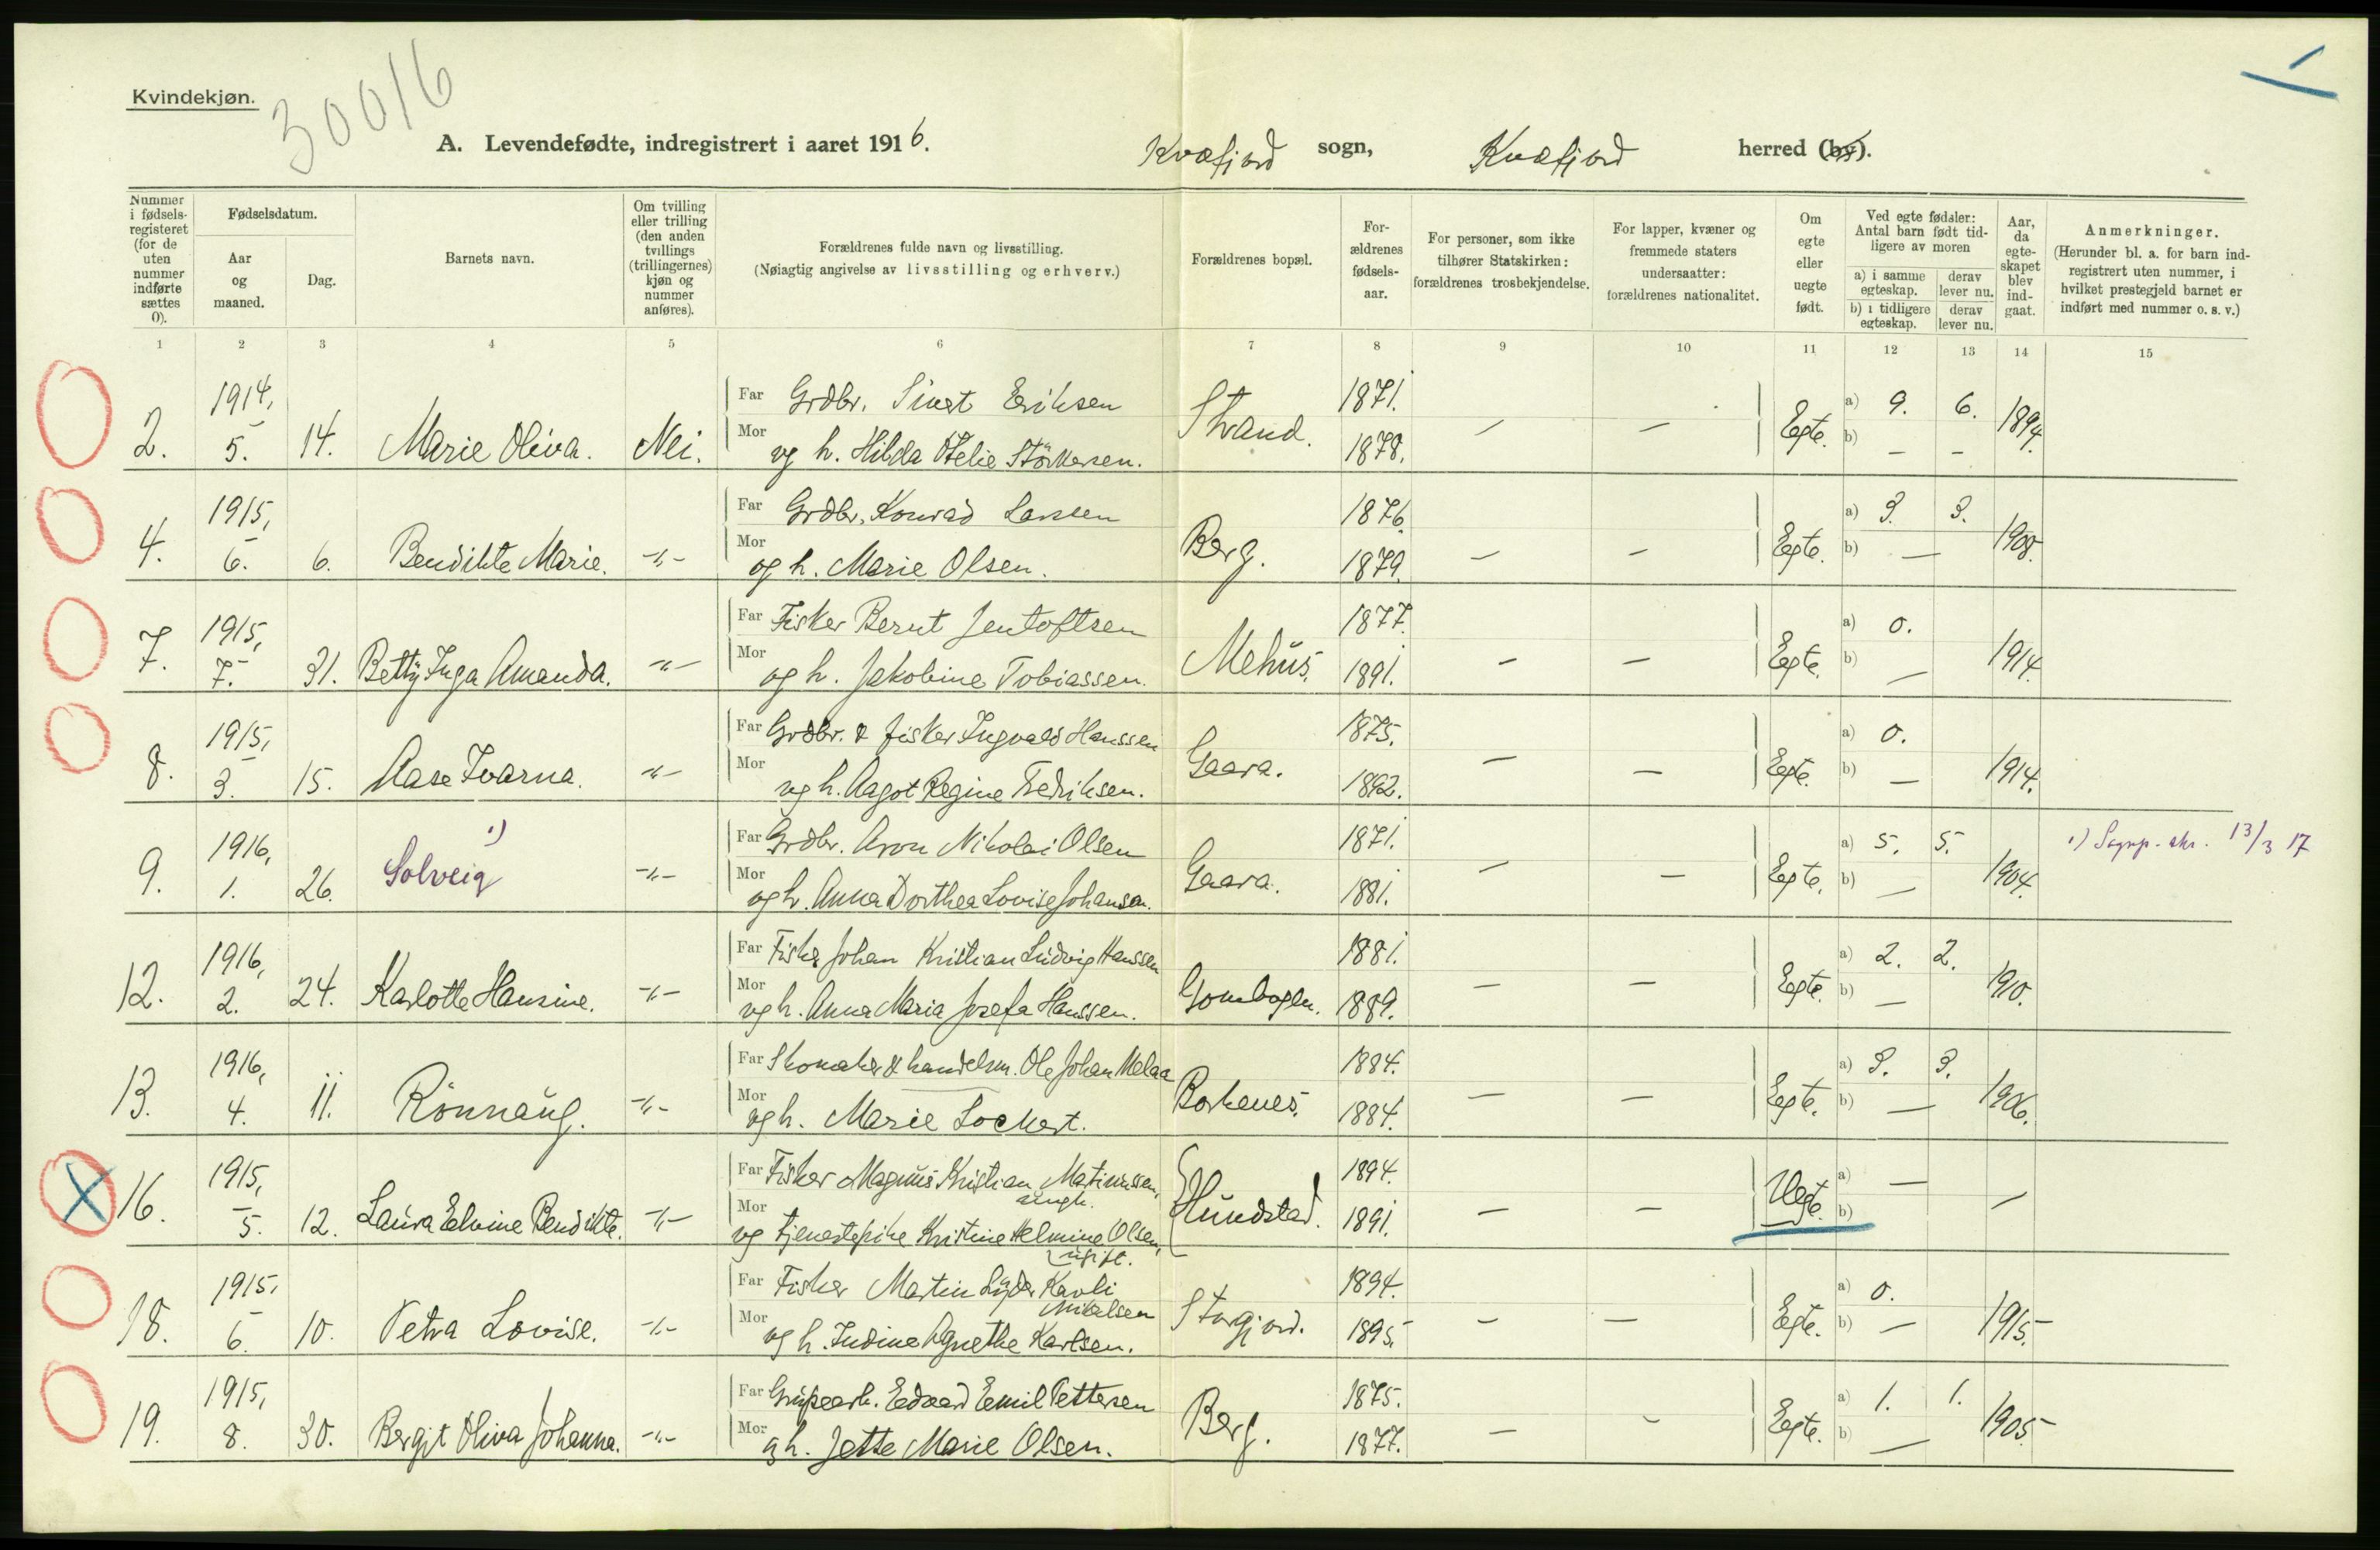 Kvindekjøn.
30016
A. Levendefødte, indregistrert i aaret 1916. Kvæfjord sogn, Kvæfjord herred (by).
Nummer i fødsels-registeret (for de uten nummer indførte sættes 0).
Fødselsdatum.
Aar og maaned.
Dag.
Barnets navn.
Om tvilling eller trilling (den anden tvillings (trillingernes) kjøn og nummer anføres).
Forældrenes fulde navn og livsstilling.
(Nøiagtig angivelse av livsstilling og erhverv.)
Forældrenes bopæl.
For-ældrenes fødsels-aar.
For personer, som ikke tilhører Statskirken: forældrenes trosbekjendelse.
For lapper, kvæner og fremmede staters undersaatter: forældrenes nationalitet.
Om egte eller uegte født.
Ved egte fødsler: Antal barn født tid-ligere av moren
a) i samme egteskap. derav lever nu.
b) i tidligere egteskap. derav lever nu.
Aar, da egte-skapet blev ind-gaat.
Anmerkninger.
(Herunder bl. a. for barn ind-registrert uten nummer, i hvilket prestegjeld barnet er indført med nummer o. s. v.)
1 2 3 4 5 6 7 8 9 10 11 12 13 14 15
1914, Far Grdbr. Sivert Eriksen 1871. a) 9. 6.
2. 5. 14. Marie Oliva. Nei. Mor og h. Hilda Otelie Störkersen. Strand. 1878. – – Egte. b) – – 1894.
1915, Far Grdbr. Konrad Larssen 1876. a) 3. 3.
4. 6. 6. Bendikte Marie. -"- Mor og h. Marie Olsen. Berg. 1879. – – Egte. b) – 1908.
1915, Far Fisker Bernt Jentoftsen 1877. a) 0.
7. 7. 31. Betty Inga Amanda. -"- Mor og h. Jakobine Tobiassen. Mehus. 1891. – – Egte. b) – 1914.
1915, Far Grdbr. & fisker Ingvald Hanssen 1875. a) 0.
8. 3. 15. Aase Ivarna. -"- Mor og h. Aagot Regine Fredriksen. Gaara. 1892. – – Egte. b) – 1914.
1916, 1) Far Grdbr. Aron Nikolai Olsen 1871. a) 5. 5. 1) Supp. skr. 13/3 17
9. 1. 26. Solveig -"- Mor og h. Anna Dorthea Lovise Johansen. Gaara. 1881. – – Egte. b) – 1904.
1916, Far Fisker Johan Kristian Ludvig Hanssen 1881. a) 2. 2.
12. 2. 24. Karlotte Hansine. -"- Mor og h. Anna Maria Josefa Hanssen. 1889. – – Egte. b) – 1910.
1916, Far Skomaker & handelsm. Ole Johan Melaa 1884. a) 3. 3.
13. 4. 11. Rönnaug. -"- Mor og h. Marie Lockert. Borkenes. 1884. – – Egte. b) – 1906.
1915, Far Fisker Magnus Kristian Martinussen, ungk. 1894. a) –
16. 5. 12. Laura Elvine Bendikte. -"- Mor og tjenestepike Kristine Helmine Olsen, ugift. Hundstad. 1891. – – Uegte. b) –
1915, Far Fisker Martin Lyder Kavli Mikalsen 1894. a) 0.
18. 6. 10. Petra Lovise. -"- Mor og h. Indine Agnethe Karlsen. Storjord. 1895. – – Egte. b) – 1915.
1915, Far Grubearb. Edvard Emil Pettersen 1875. a) 1. 1.
19. 8. 30. Bergit Oliva Johanna. -"- Mor og h. Jette Marie Olsen. Berg. 1877. – – Egte. b) – 1905.